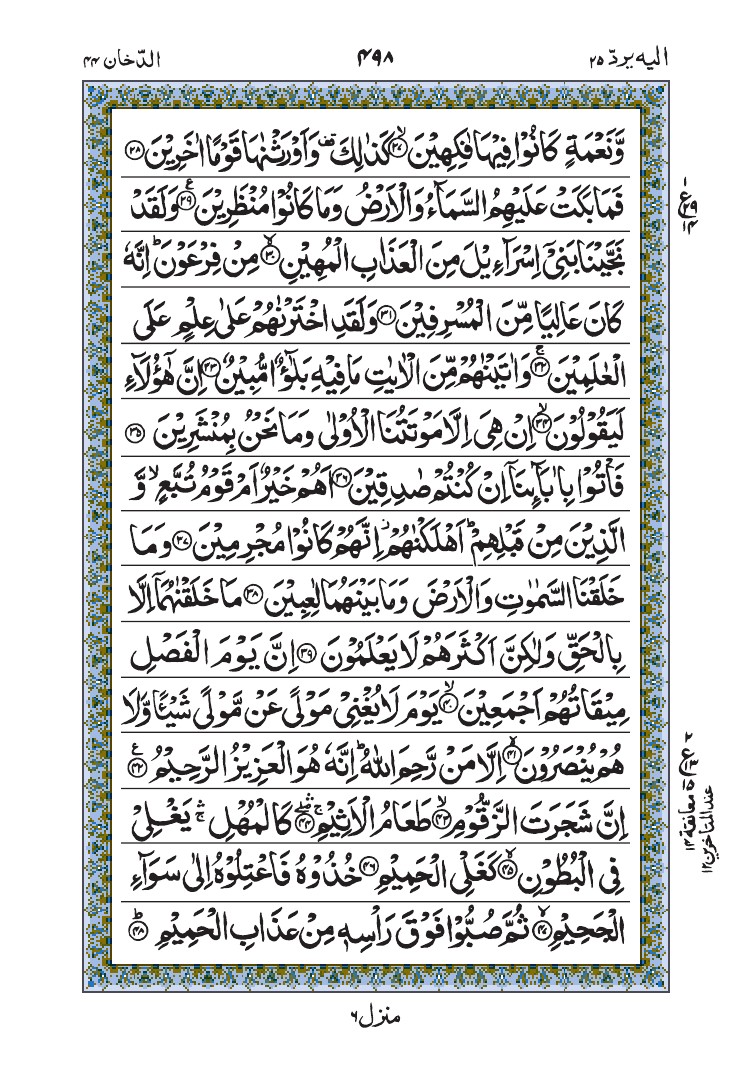 اليه يردّ ٢٥
٤٩٨
الدّخان ٤٤
وَّنَعۡمَةٍ كَانُوۡا فِيۡهَا فٰكِهِيۡنَ ۙ‏﴿۲۷﴾ كَذٰلِكَ ۚ وَاَوۡرَثۡنٰهَا قَوۡمًا اٰخَرِيۡنَ‏ ﴿۲۸﴾
فَمَا بَكَتۡ عَلَيۡهِمُ السَّمَآءُ وَالۡاَرۡضُ وَمَا كَانُوۡا مُنۡظَرِيۡنَ ﴿۲۹﴾ ع وَلَقَدۡ
نَجَّيۡنَا بَنِىۡۤ اِسۡرَآءِيۡلَ مِنَ الۡعَذَابِ الۡمُهِيۡنِۙ‏ ﴿۳۰﴾ مِنۡ فِرۡعَوۡنَ‌ؕ اِنَّهٗ
كَانَ عَالِيًا مِّنَ الۡمُسۡرِفِيۡنَ‏ ﴿۳۱﴾ وَلَقَدِ اخۡتَرۡنٰهُمۡ عَلٰى عِلۡمٍ عَلَى
الۡعٰلَمِيۡنَ‌ۚ‏ ﴿۳۲﴾ وَاٰتَيۡنٰهُمۡ مِّنَ الۡاٰيٰتِ مَا فِيۡهِ بَلٰٓؤٌا مُّبِيۡنٌ‏ ﴿۳۳﴾ اِنَّ هٰٓؤُلَآءِ
لَيَقُوۡلُوۡنَۙ‏ ﴿۳۴﴾ اِنۡ هِىَ اِلَّا مَوۡتَتُنَا الۡاُوۡلٰى وَمَا نَحۡنُ بِمُنۡشَرِيۡنَ‏ ﴿۳۵﴾
فَاۡتُوۡا بِاٰبَآٮِٕنَاۤ اِنۡ كُنۡتُمۡ صٰدِقِيۡنَ‏ ﴿۳۶﴾ اَهُمۡ خَيۡرٌ اَمۡ قَوۡمُ تُبَّعٍ ۙ وَّ
الَّذِيۡنَ مِنۡ قَبۡلِهِمۡ‌ؕ اَهۡلَكۡنٰهُمۡ‌ اِنَّهُمۡ كَانُوۡا مُجۡرِمِيۡنَ‏ ﴿۳۷﴾ وَمَا
خَلَقۡنَا السَّمٰوٰتِ وَالۡاَرۡضَ وَمَا بَيۡنَهُمَا لٰعِبِيۡنَ‏ ﴿۳۸﴾ مَا خَلَقۡنٰهُمَاۤ اِلَّا
بِالۡحَقِّ وَلٰكِنَّ اَكۡثَرَهُمۡ لَا يَعۡلَمُوۡنَ‏ ﴿۳۹﴾ اِنَّ يَوۡمَ الۡفَصۡلِ
مِيۡقَاتُهُمۡ اَجۡمَعِيۡنَۙ‏ ﴿۴۰﴾ يَوۡمَ لَا يُغۡنِىۡ مَوۡلًى عَنۡ مَّوۡلًى شَيۡـًٔا وَّلَا
هُمۡ يُنۡصَرُوۡنَۙ‏ ﴿۴۱﴾ اِلَّا مَنۡ رَّحِمَ اللّٰهُ‌ؕ اِنَّهٗ هُوَ الۡعَزِيۡزُ الرَّحِيۡمُ ﴿۴۲﴾ ع
اِنَّ شَجَرَتَ الزَّقُّوۡمِۙ‏ ﴿۴۳﴾ طَعَامُ الۡاَثِيۡمِ ۛۚ ۖ‏ ﴿۴۴﴾ كَالۡمُهۡلِ ۛۚ يَغۡلِىۡ
فِى الۡبُطُوۡنِۙ‏ ﴿۴۵﴾ كَغَلۡىِ الۡحَمِيۡمِ‏ ﴿۴۶﴾ خُذُوۡهُ فَاعۡتِلُوۡهُ اِلٰى سَوَآءِ
الۡجَحِيۡمِ ۖ‏ ﴿۴۷﴾ ثُمَّ صُبُّوۡا فَوۡقَ رَاۡسِهٖ مِنۡ عَذَابِ الۡحَمِيۡمِؕ‏ ﴿۴۸﴾
معانقة ١٣
عند المتأخرين ١٢
منزل ٦